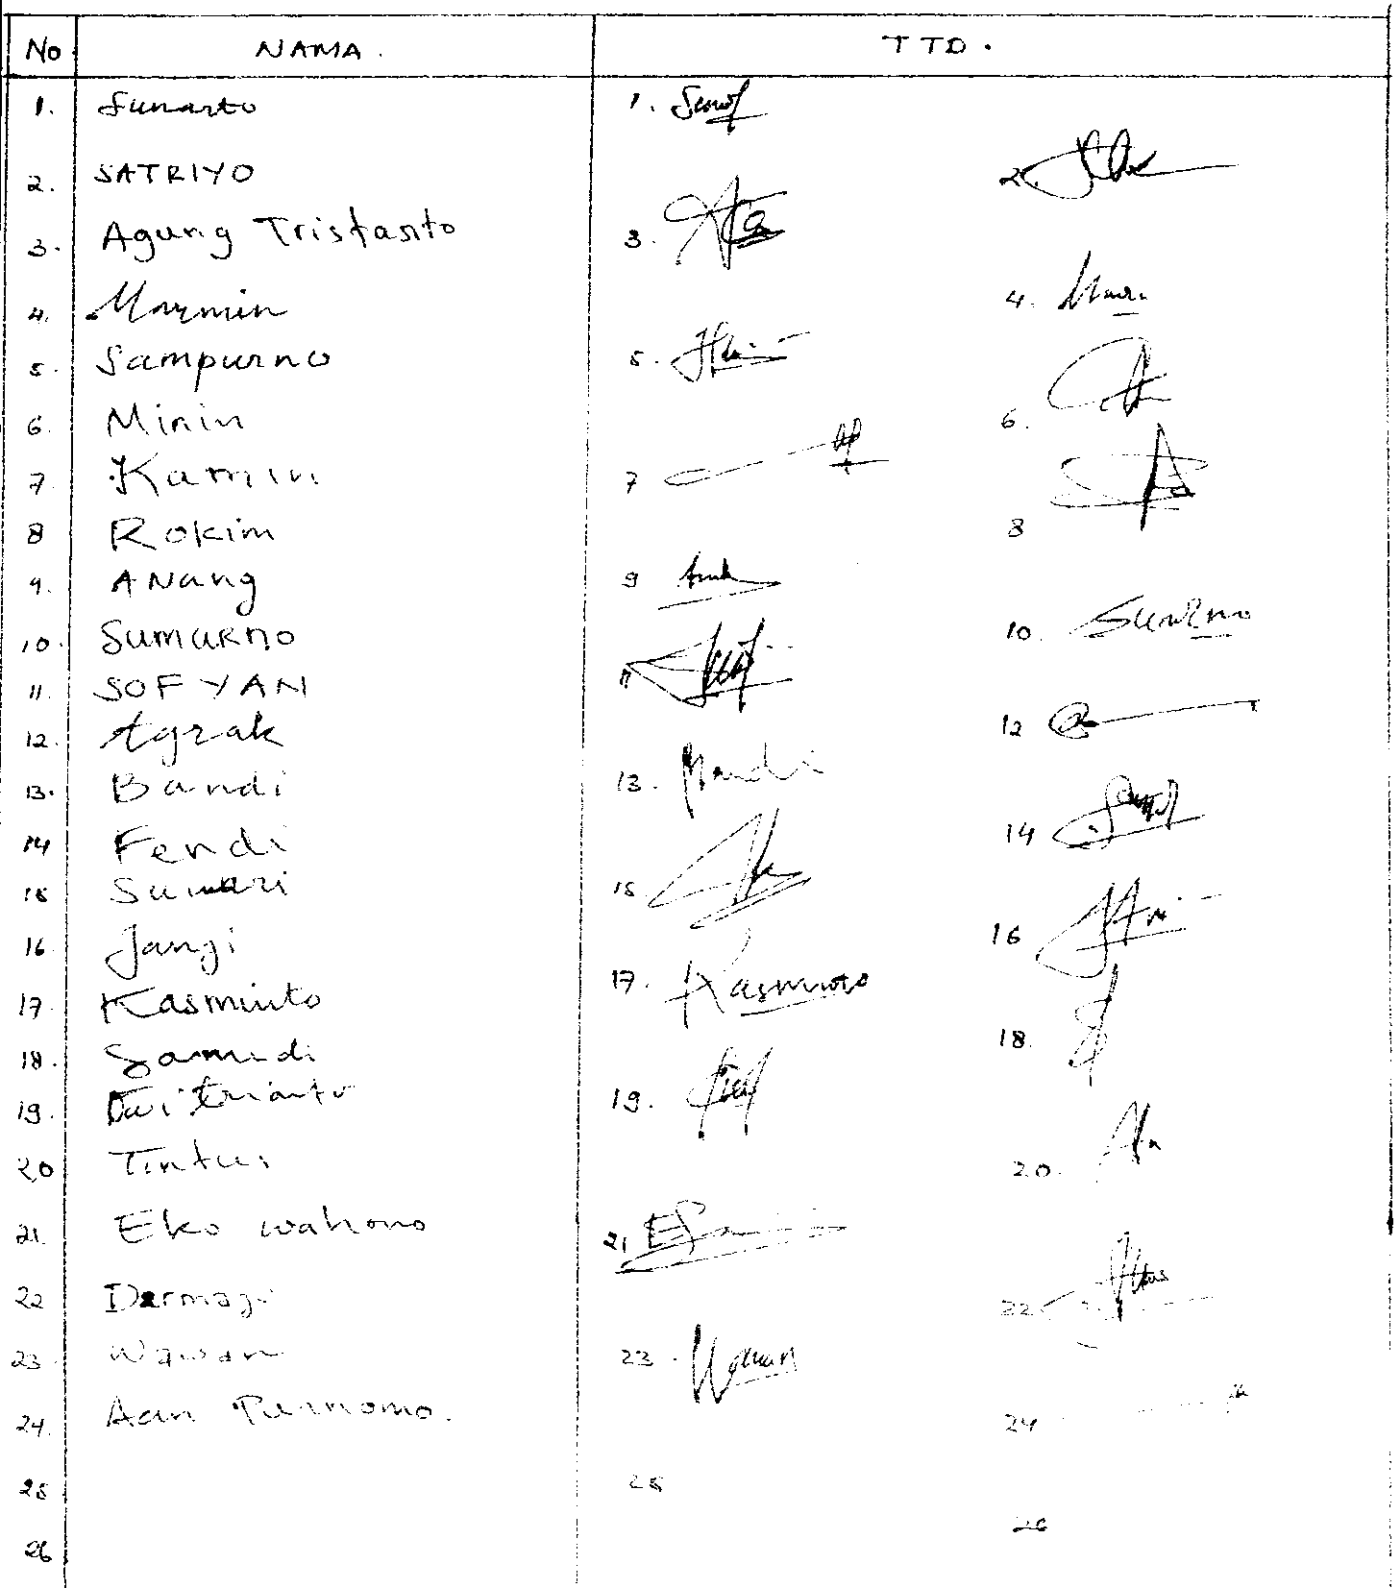 No NAMA. TTD.
1. Sunarto 1.
2. SATRIYO 2.
3. Agung Tristanto 3.
4. Marmin 4.
5. Sampurno 5.
6. Minin 6.
7. Kamin 7
8 Rokim 8
9. ANang 9
10. SumaRno 10.
11. SOFYAN 11
12. Agrak 12
13. Bandi 13.
14 Fendi 14
15 Sumari 15
16 Jangi 16
17 Kasminto 17. Kasminto
18. Samidi 18.
19. Dwi trianto 19.
20 Tintus 20.
21. Eko wahono 21
22 Darmaji 22
23. Wawan 23.
24. Aan Purnomo. 24
25 25
26 26